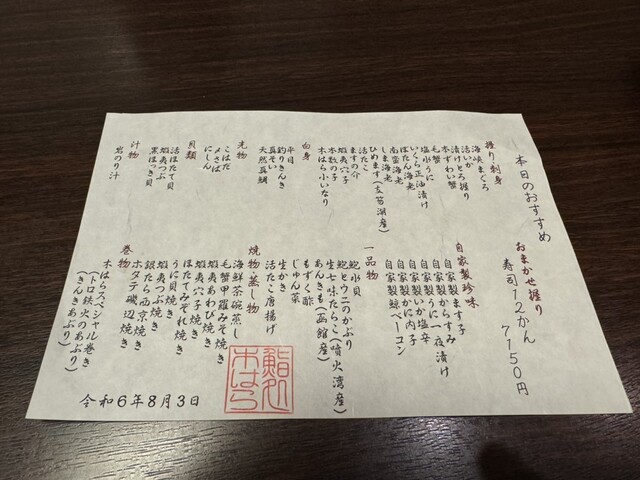 本日のおすすめ
おまかせ握り
寿司12かん
7150円
握り・刺身
海峡まぐろ
活いか
漬けとろ握り
本ずわい蟹
毛蟹
塩水うに
いくら正油漬け
ぼたん海老
南蛮海老
しま海老
ひめます(支笏湖産)
活たこ
ますの介
蝦夷穴子
本数の子
木はら小いなり
白身
平目
釣りきんき
真そい
天然真鯛
光物
こはだ
〆さば
にしん
貝類
活ほたて貝
蝦夷つぶ
黒ほっき貝
汁物
岩のり汁
自家製珍味
自家製ます子
自家製からすみ
自家製うに一夜漬け
自家製いか塩辛
自家製かに内子
自家製鯨ベーコン
一品物
鮑水貝
鮑とウニのかぶり
生七味たらこ(噴火湾産)
あんきも(函館産)
もずく酢
じゅん菜
生かき
活たこ唐揚げ
焼物・蒸し物
海鮮茶碗蒸し
毛蟹甲羅みそ焼き
蝦夷あわび焼き
蝦夷穴子焼き
ほたてみぞれ焼き
うに貝焼き
蝦夷つぶ焼き
銀たら西京焼き
ホタテ磯辺焼き
巻物
木はらスペシャル巻き
(トロ鉄火のあぶり)
(きんきあぶり)
令和6年8月3日
鮨処
木はら